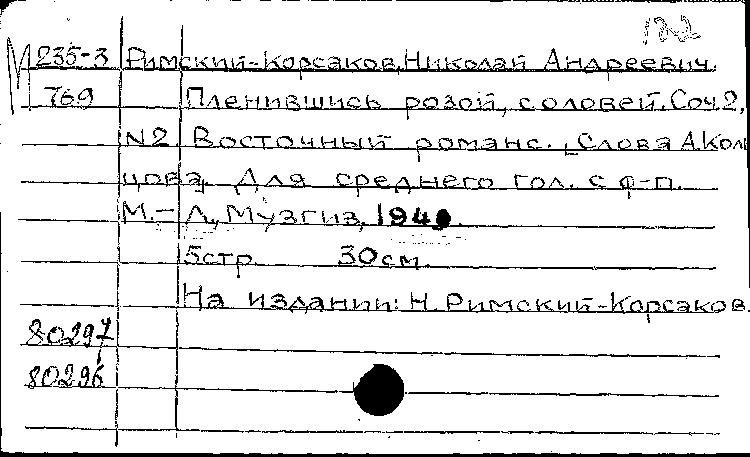 122
М 235-3 Римский-Корсаков, Николай Андреевич.
769 Пленившись розой, соловей. Соч. 2,
N2 Восточный романс. [Слова А. Коль
цова]. Для среднего гол. с ф-п.
М.-Л., Музгиз,
5 стр. 30 см.
На издании: Н. Римский-Корсаков.
80297
80296